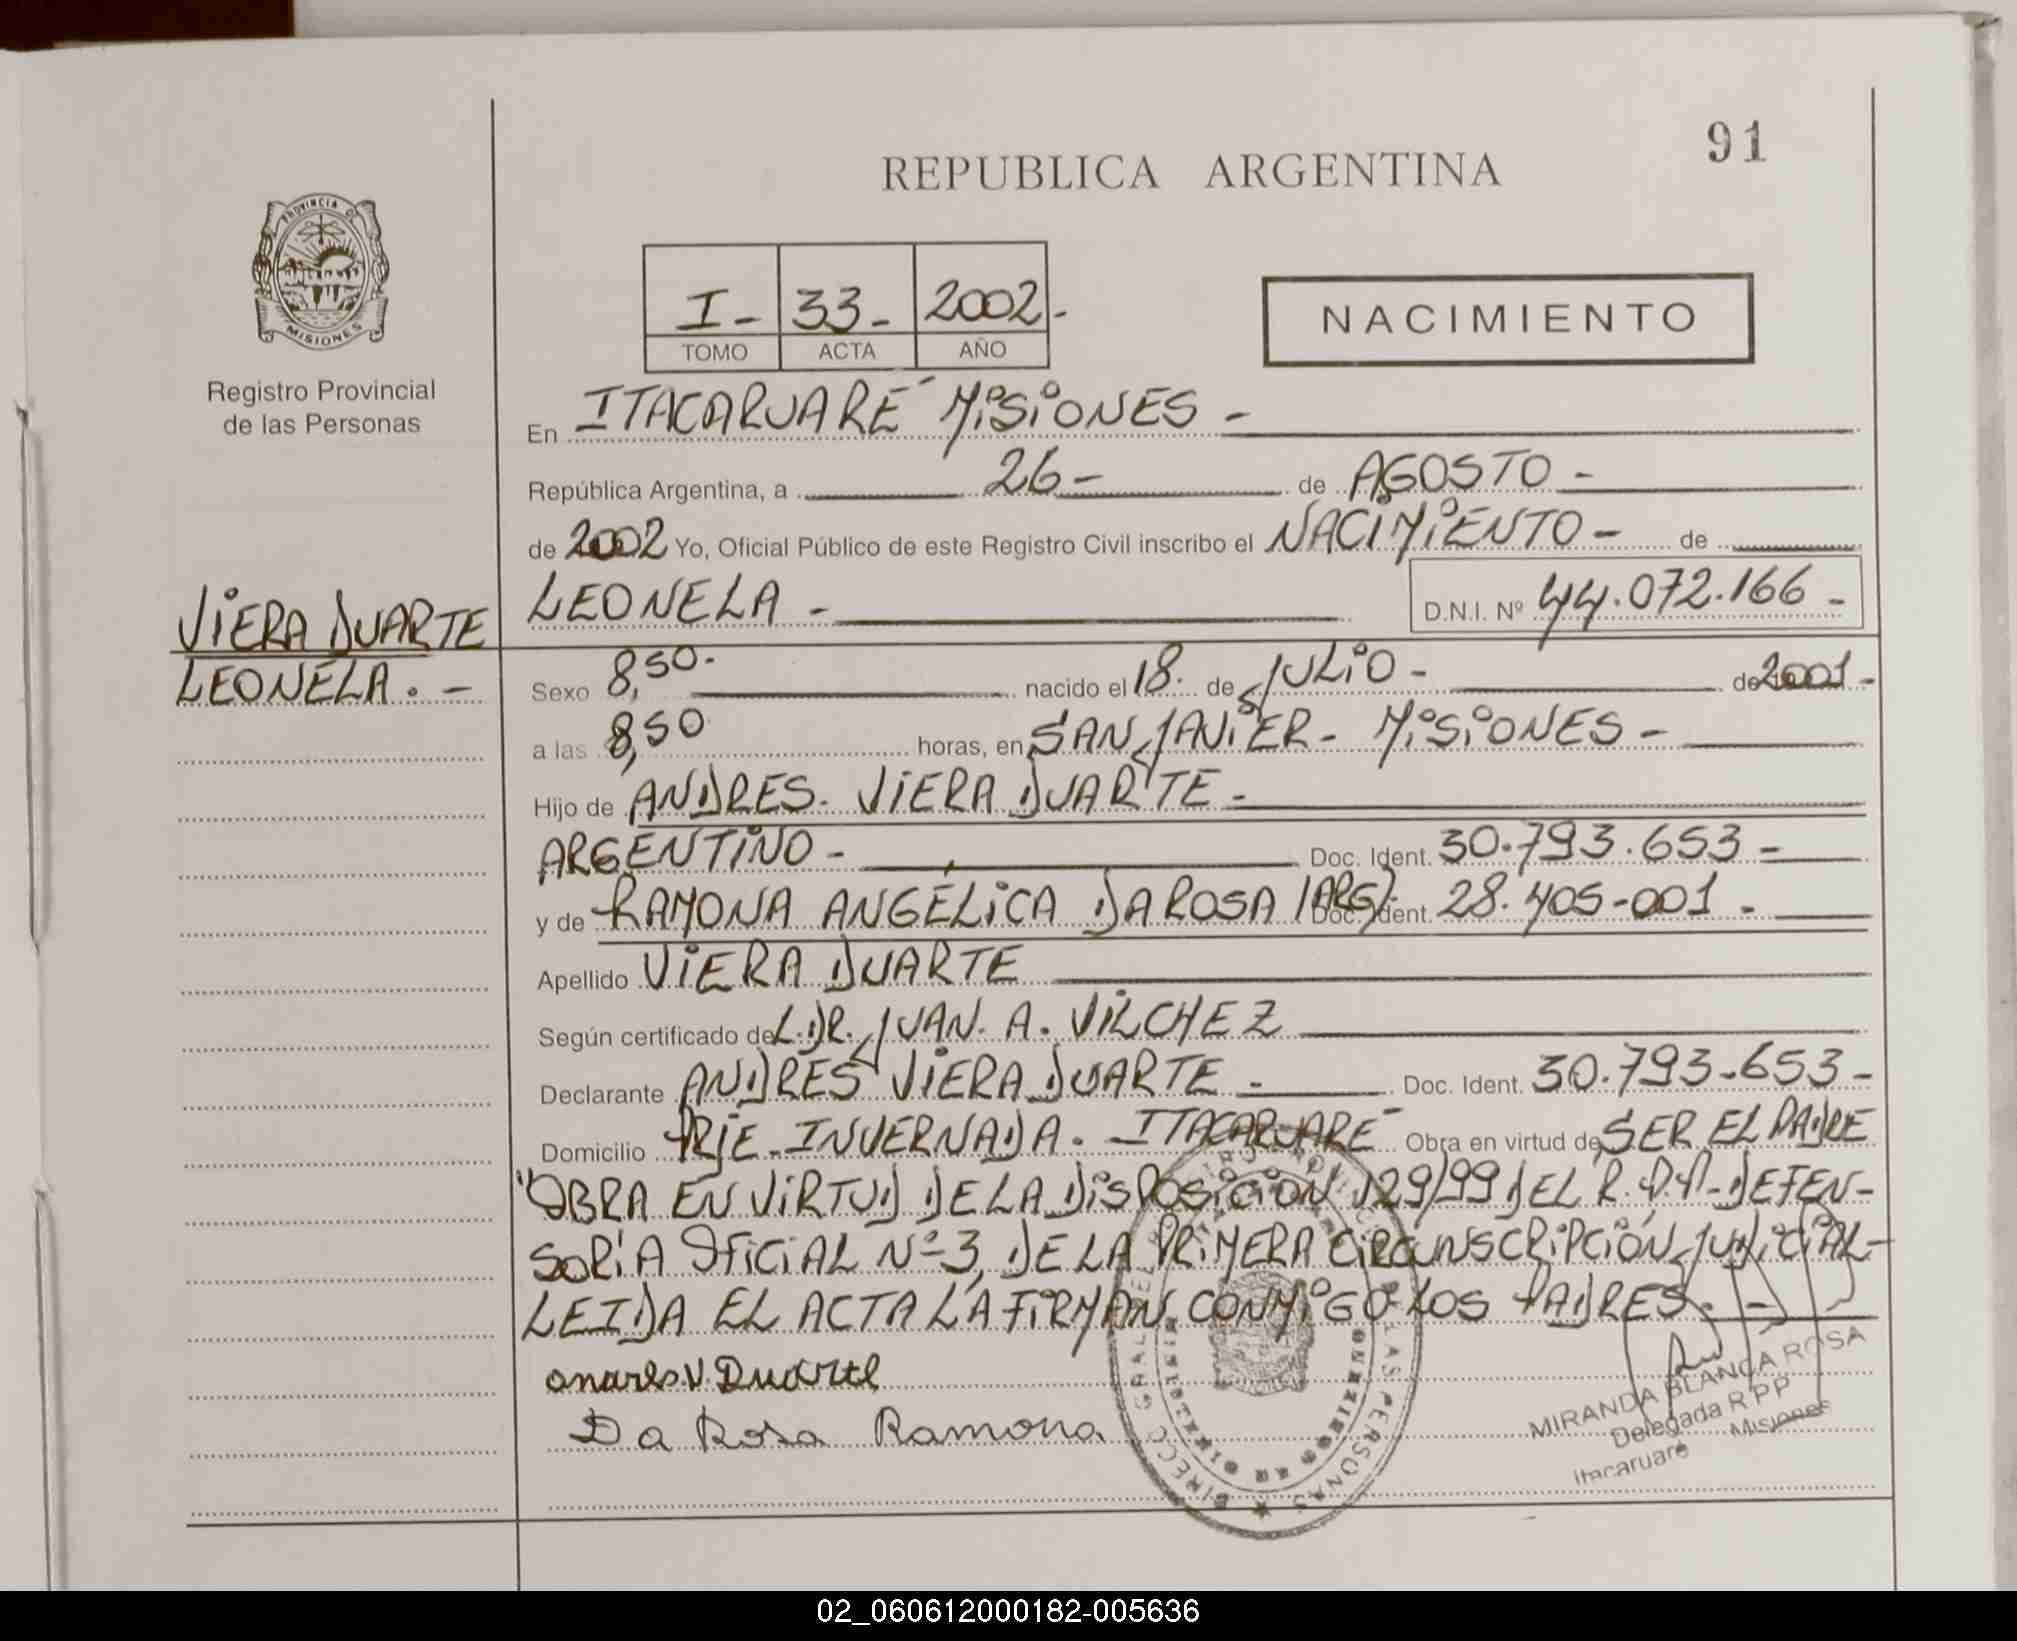 91
REPUBLICA ARGENTINA
PROVINCIA DE
MISIONES
Registro Provincial
de las Personas
I - 33 - 2002 -
TOMO ACTA AÑO
NACIMIENTO
En ITACARUARE MISIONES -
República Argentina, a 26 - de AGOSTO -
de 2002 Yo, Oficial Público de este Registro Civil inscribo el NACIMIENTO - de
LEONELA - D.N.I. Nº 44.072.166 -
VIERA DUARTE
LEONELA . -
Sexo 8,50. nacido el 18. de JULIO - de 2001 -
a las 8,50 horas, en SAN JAVIER - MISIONES -
Hijo de ANDRES. VIERA DUARTE -
ARGENTINO - Doc. Ident. 30.793.653 -
y de RAMONA ANGÉLICA DA ROSA (ARG) Doc. Ident. 28.405-001 -
Apellido VIERA DUARTE
Según certificado de L. DR. JUAN. A. VILCHEZ
Declarante ANDRÉS VIERA DUARTE - Doc. Ident. 30.793-653 -
Domicilio PRJE - INVERNADA. ITACARUARÉ Obra en virtud de SER EL PADRE
"OBRA EN VIRTUD DE LA DISPOSICIÓN 129/99 DEL R.P.P - DEFEN-
SORIA OFICIAL Nº 3, DE LA PRIMERA CIRCUNSCRIPCIÓN JUDICIAL -
LEIDA EL ACTA LA FIRMAN CONMIGO LOS PADRES. -
V. Duarte
Da Rosa Ramona
DE LAS PERSONAS
MIRANDA BLANCA ROSA
Delegada R P P
Itacaruaré Misiones
02_060612000182-005636